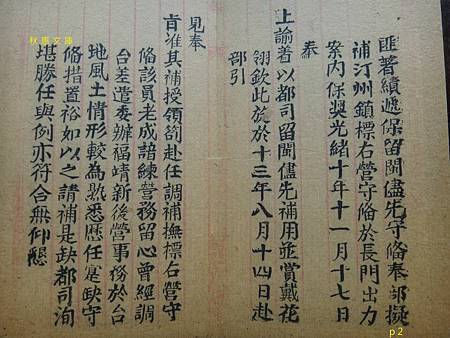 匪著績遞保留閩儘先守俻奉部擬
補汀州鎮標右營守俻於長門出力
案內保奬光緒十年十一月十七日
奉
上諭着以都司留閩儘先補用並賞戴花
翎欽此於於十三年八月十四日赴
部引
見奉
㫖准其補授領劄赴任調補撫標右營守
俻該員老成諳練營務留心曾經調
台差遣委辦福靖新後營事務於台
地風土情形較為熟悉歷任寔缺守
俻措置裕如以之請補是缺都司洵
堪勝任與例亦符合無仰懇
秋惠文庫
p2